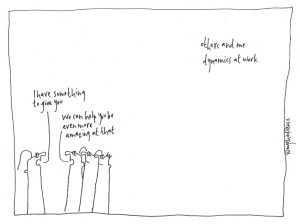 others and me
dynamics at work
I have something
to give you
we can help you be
even more
amazing at that